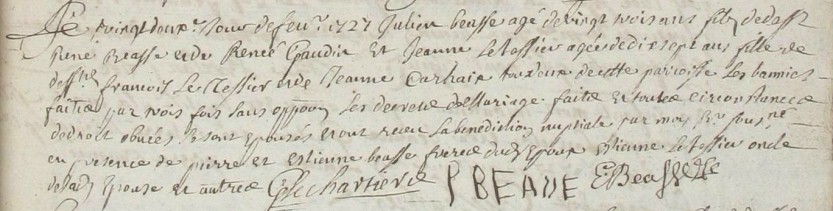 Le vingt deuxe. Jour de feur. 1727 Julien beasse agé de vingt trois ans fils de defft
René Beasse et de Renée Gaudin Et Jeanne Le tessier agée de dix sept ans fille de
deffnt francois Le Tessier et de Jeanne Carhaix tous deux de cette paroisse Les bannies
faittes par trois fois sans oppoon Les decrets de Mariage faits Et toutes circonstances
de droit obuées Se sont Epousés Et ont receu La benediction nuptiale par moy
en presence de pierre et Estienne beasse freres dudt Epoux Etienne Le tessier oncle
de ladt Epouse Et autres Lechartier P BEASSE E Beasse